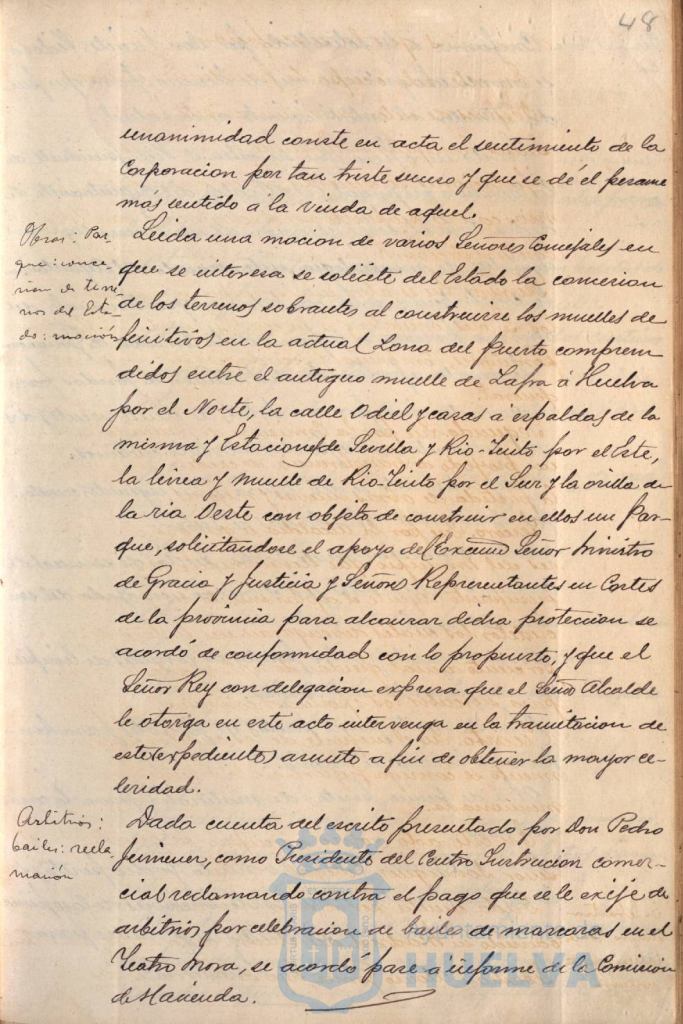 48
unanimidad conste en acta el sentimiento de la
Corporacion por tan triste suceso y que se dé el pesame
más sentido á la viuda de aquel.
Obras: Par-
que: conce-
sion de terre-
nos del Esta-
do: moción
Leida una mocion de varios Señores Concejales en
que se interesa se solicite del Estado la concesion
de los terrenos sobrantes al construirse los muelles de
finitivos en la actual Zona del puerto compren
didos entre el antiguo muelle de Zafra á Huelva
por el Norte, la calle Odiel y casas á espaldas de la
misma y Estaciones de Sevilla y Rio-Tinto por el Este,
la linea y muelle de Rio-Tinto por el Sur y la orilla de
la ria Oeste con objeto de construir en ellos un Par-
que, solicitandose el apoyo del Excmo Señor Ministro
de Gracia y Justicia y Señores Representantes en Cortes
de la provincia para alcanzar dicha proteccion se
acordó de conformidad con lo propuesto, y que el
Señor Rey con delegacion expresa que el Señor Alcalde
le otorga en este acto intervenga en la tramitacion de
este (expediente) asunto a fin de obtener la mayor ce-
leridad.
Arbitrios:
bailes: recla
mación
Dada cuenta del escrito presentado por Don Pedro
Jimenez, como Presidente del Centro Instruccion comer-
cial reclamando contra el pago que se le exije de
arbitrios por celebracion de bailes de mascaras en el
Teatro Mora, se acordó pase a informe de la Comision
de Hacienda.
HUELVA